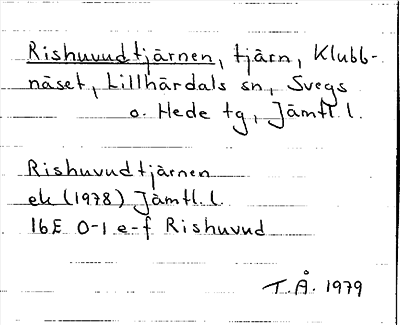 Rishuvudtjärnen, tjärn, Klubb-
näset, Lillhärdals sn, Svegs
o. Hede tg, Jämtl. l.
Rishuvudtjärnen
ek (1978) Jämtl. l.
16E 0-1 e-f Rishuvud
T.Å. 1979